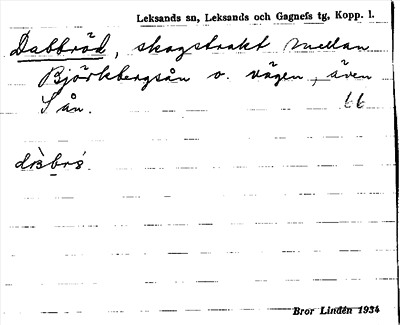 Leksands sn, Leksands och Gagnefs tg, Kopp. l.
Dabbröd, skogstrakt mellan
Björkbergsån o. vägen, även
S ån. 66
Bror Lindén 1934